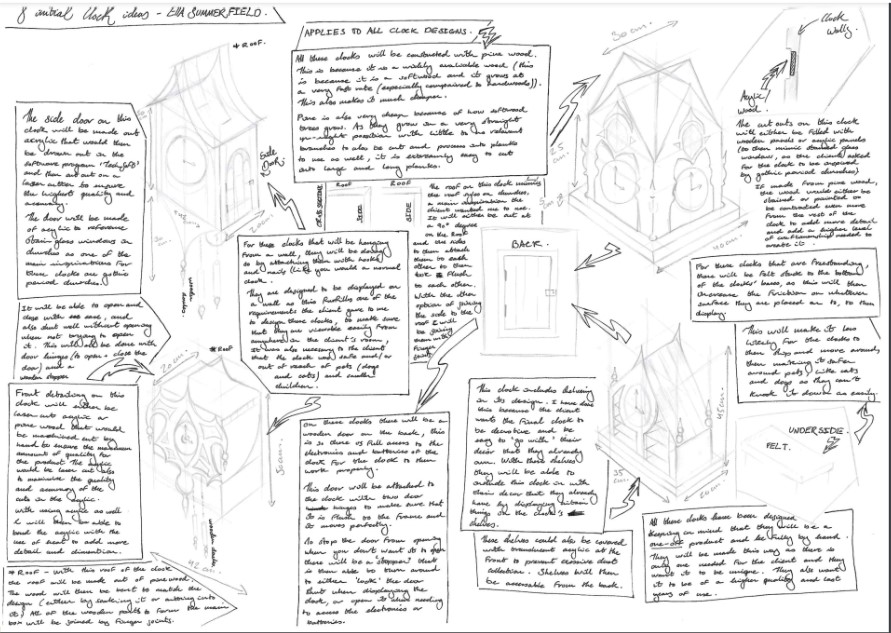 8 initial Clock ideas - ELLA SUMMERFIELD.
* ROOF.
The side door on this
clock will be made out
acrylic that would then
be drawn out in the
software program 'Techsoft'
and then cut out on a
laser cutter to ensure
the highest quality and
accuracy.
The door will be made
of acrylic to reference
stain glass windows in
churches as one of the
main inspirations for
these clocks are gothic
period churches.
It will be able to open and
close with ease, and
also shut well without opening
when not trying to open
it. This will all be done with
door hinges (to open + close the
door) and a
wooden stopper
Side
Door.
20cm.
* ROOF
Front detailing on this
clock will either be
laser cut acrylic or
pine wood that would
be machined out by
hand to ensure the maximum
amount of quality for
the product. The acrylic
would be laser cut also
to maximise the quality
and accuracy of the
cuts in the acrylic.
With using acrylic as well
I will then be able to
bend the acrylic with the
use of heat to add more
detail and dimention.
50cm
* ROOF - With this roof of the clock
the roof will be made out of pine wood.
The wood will then be bent to match the
design (either by soaking it or
it) All of the wooden parts to form the main
box will be joined by finger joints.
APPLIES TO ALL CLOCK DESIGNS.
All these clocks will be constructed with pine wood.
This is because it is a widely available wood (this
is because it is a softwood and its grows at
a very fast rate (especially compared to hardwoods)).
This also makes it much cheaper.
Pine is also very cheap because of how softwood
trees grow. As they grow in a very straight
up-right position with little to no relevant
branches to also be cut and process into planks
to use as well, it is extremely easy to cut
into large and long planks.
ROOF
ROOF
SIDE
SIDE
The roof on this clock mimics
the roof styles on churches,
a main inspiration the
client wanted me to use.
It will either be cut at
a 90° degree
on the roof
and the sides
to then attach
them to each
other to then
be flush
to each other.
With the other
option of joining
the side to the
roof I will
be joining
them with
finger
joints.
For these clocks that will be hanging
from a wall, they will be doing
so by attaching them with hooks
and nails (like you would a normal
clock.
They are designed to be displayed on
a wall as this fulfills one of the
requirements the client gave to me
to design these clocks, to make sure
that they are viewable easily from
anywhere in the client's room,
It was also necessary to the client
that the clock was safe and/or
out of reach of pets (dogs
and cats) and small
children.
BACK.
On these clocks there will be a
wooden door on the back, this
is so there is full access to the
electronics and batteries of the
clock for the clock to then
work properly.
This door will be attached to
the clock with two door
hinges to make sure that
it is flush to the frame and
so moves perfectly.
To stop the door from opening
when you don't want it to open
there will be a stopper that
is then able to turn around
to either 'lock' the door
shut when displaying the
clock, or open it when needing
to access the electronics or
batteries.
This clock includes shelving
in its design. I have done
this because the client
wants the final clock to
be decorative and be
easy to 'go with' their
decor that they already
own. With these shelves
they will be able to
include this clock in with
their decor that they already
have by displaying certain
things on the clock's
shelves.
These shelves could also be covered
with translucent acrylic at the
front to prevent excessive dust
collection. Shelves will then
be accessable from the back.
30cm.
Clock
Wall.
Acrylic/
Wood.
The cut outs on this clock
will either be filled with
wooden panels or acrylic panels
(to then mimic stained glass
windows, as the client asked
for the clock to be inspired
by gothic period churches)
If made from pine wood,
the wood would either be
stained or painted to
be contrasted even more
from the rest of the
clock to add more detail
and add a higher level
of craftsmanship needed to
create it.
For these clocks that are freestanding,
there will be felt stuck to the bottom
of the clocks' bases, as this will then
increase the friction on whatever
surface they are placed on to, to then
display.
This will make it less
likely for the clocks to
then slip and move around,
then making it safer
around pets like cats
and dogs as they can't
knock it down as easily.
UNDERSIDE.
FELT.
45cm
35
cm
All these clocks have been designed
keeping in mind that they will be a
one-off product and be fully by hand.
They will be made this way as there is
only one needed for the client and they
want it to be unique. They also want
it to be of a higher quality and last
years of use.